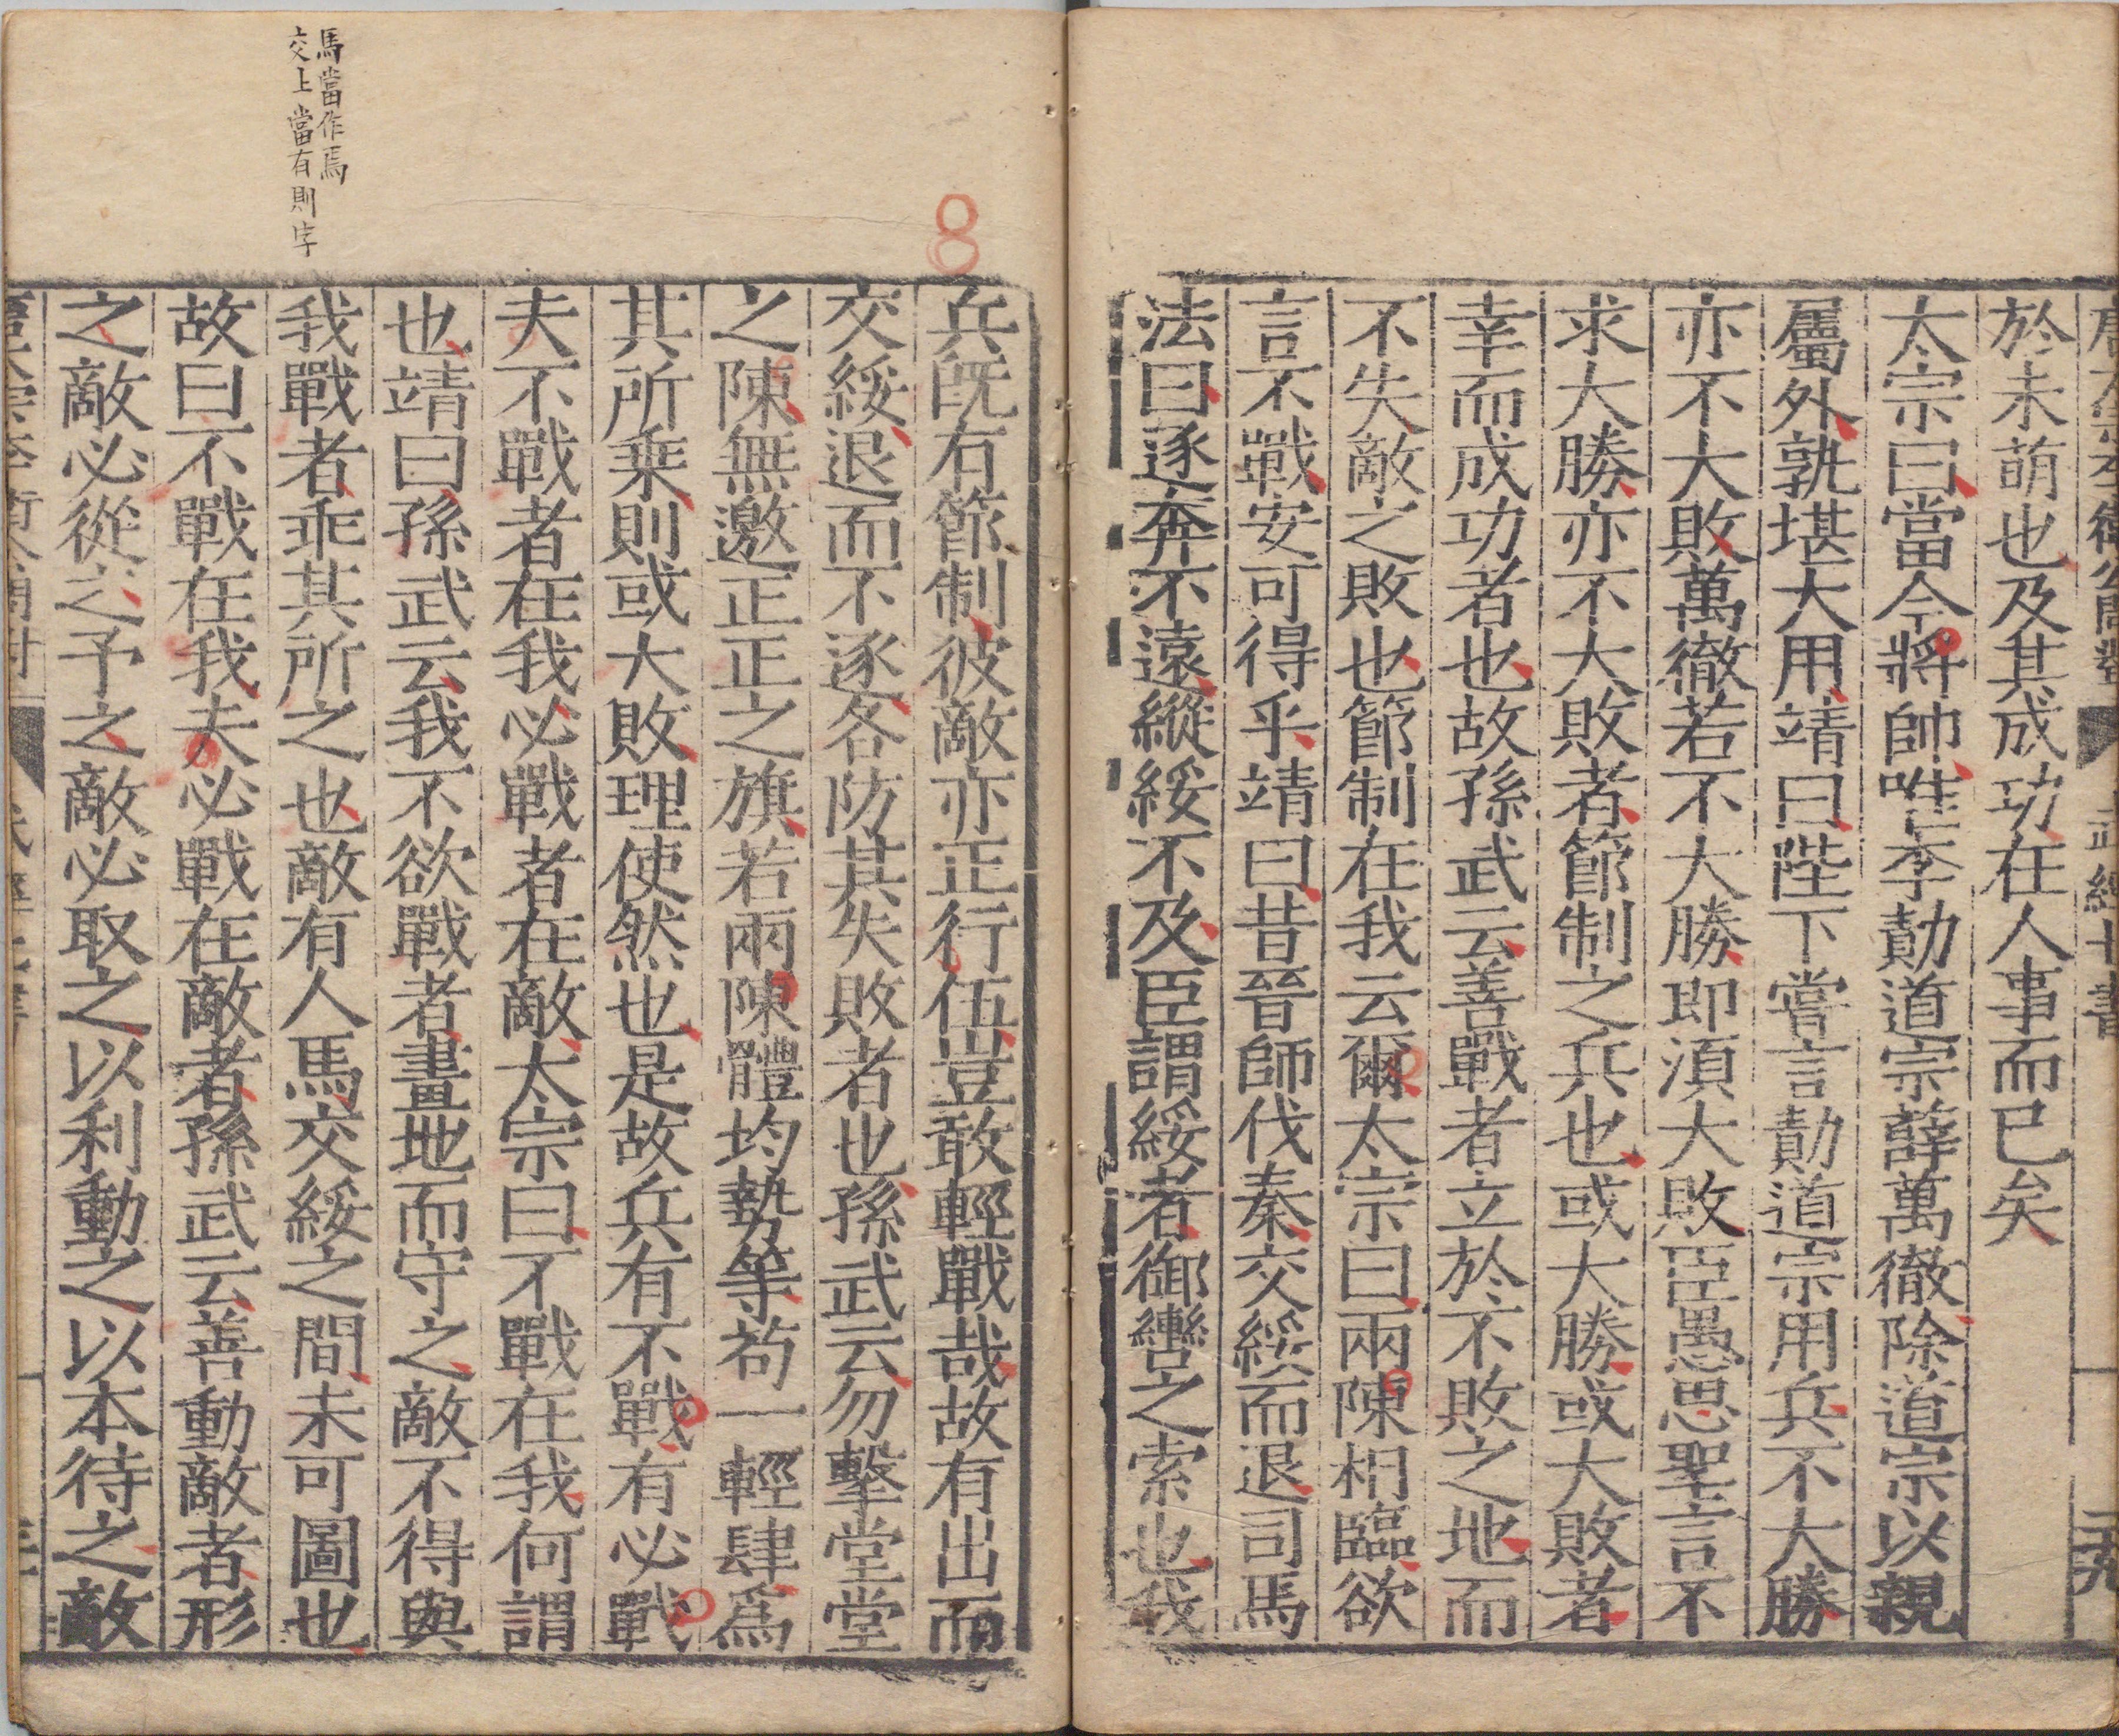 於未萌也及其成功在人事而已矣
太宗曰當今將帥唯李勣道宗薛萬徹除道宗以親
屬外孰堪大用靖曰陛下嘗言勣道宗用兵不大勝
亦不大敗萬徹若不大勝即須大敗臣愚思聖言不
求大勝亦不大敗者節制之兵也或大勝或大敗者
幸而成功者也故孫武云善戰者立於不敗之地而
不失敵之敗也節制在我云爾太宗曰兩陳相臨欲
言不戰安可得乎靖曰昔晉師伐秦交綏而退司馬
法曰逐奔不遠縱綏不及臣謂綏者御轡之索也我
兵既有節制彼敵亦正行伍豈敢輕戰哉故有出而
交綏退而不逐各防其失敗者也孫武云勿擊堂堂
之陳無邀正正之旗若兩陳體均勢等苟一輕肆爲
其所乗則或大敗理使然也是故兵有不戰有必戰
夫不戰者在我必戰者在敵太宗曰不戰在我何謂
也靖曰孫武云我不欲戰者畫地而守之敵不得與
我戰者乖其所之也敵有人馬交綏之間未可圖也
故曰不戰在我夫必戰在敵者孫武云善動敵者形
之敵必從之予之敵必取之以利動之以本待之敵
馬當作焉
交上當有則字